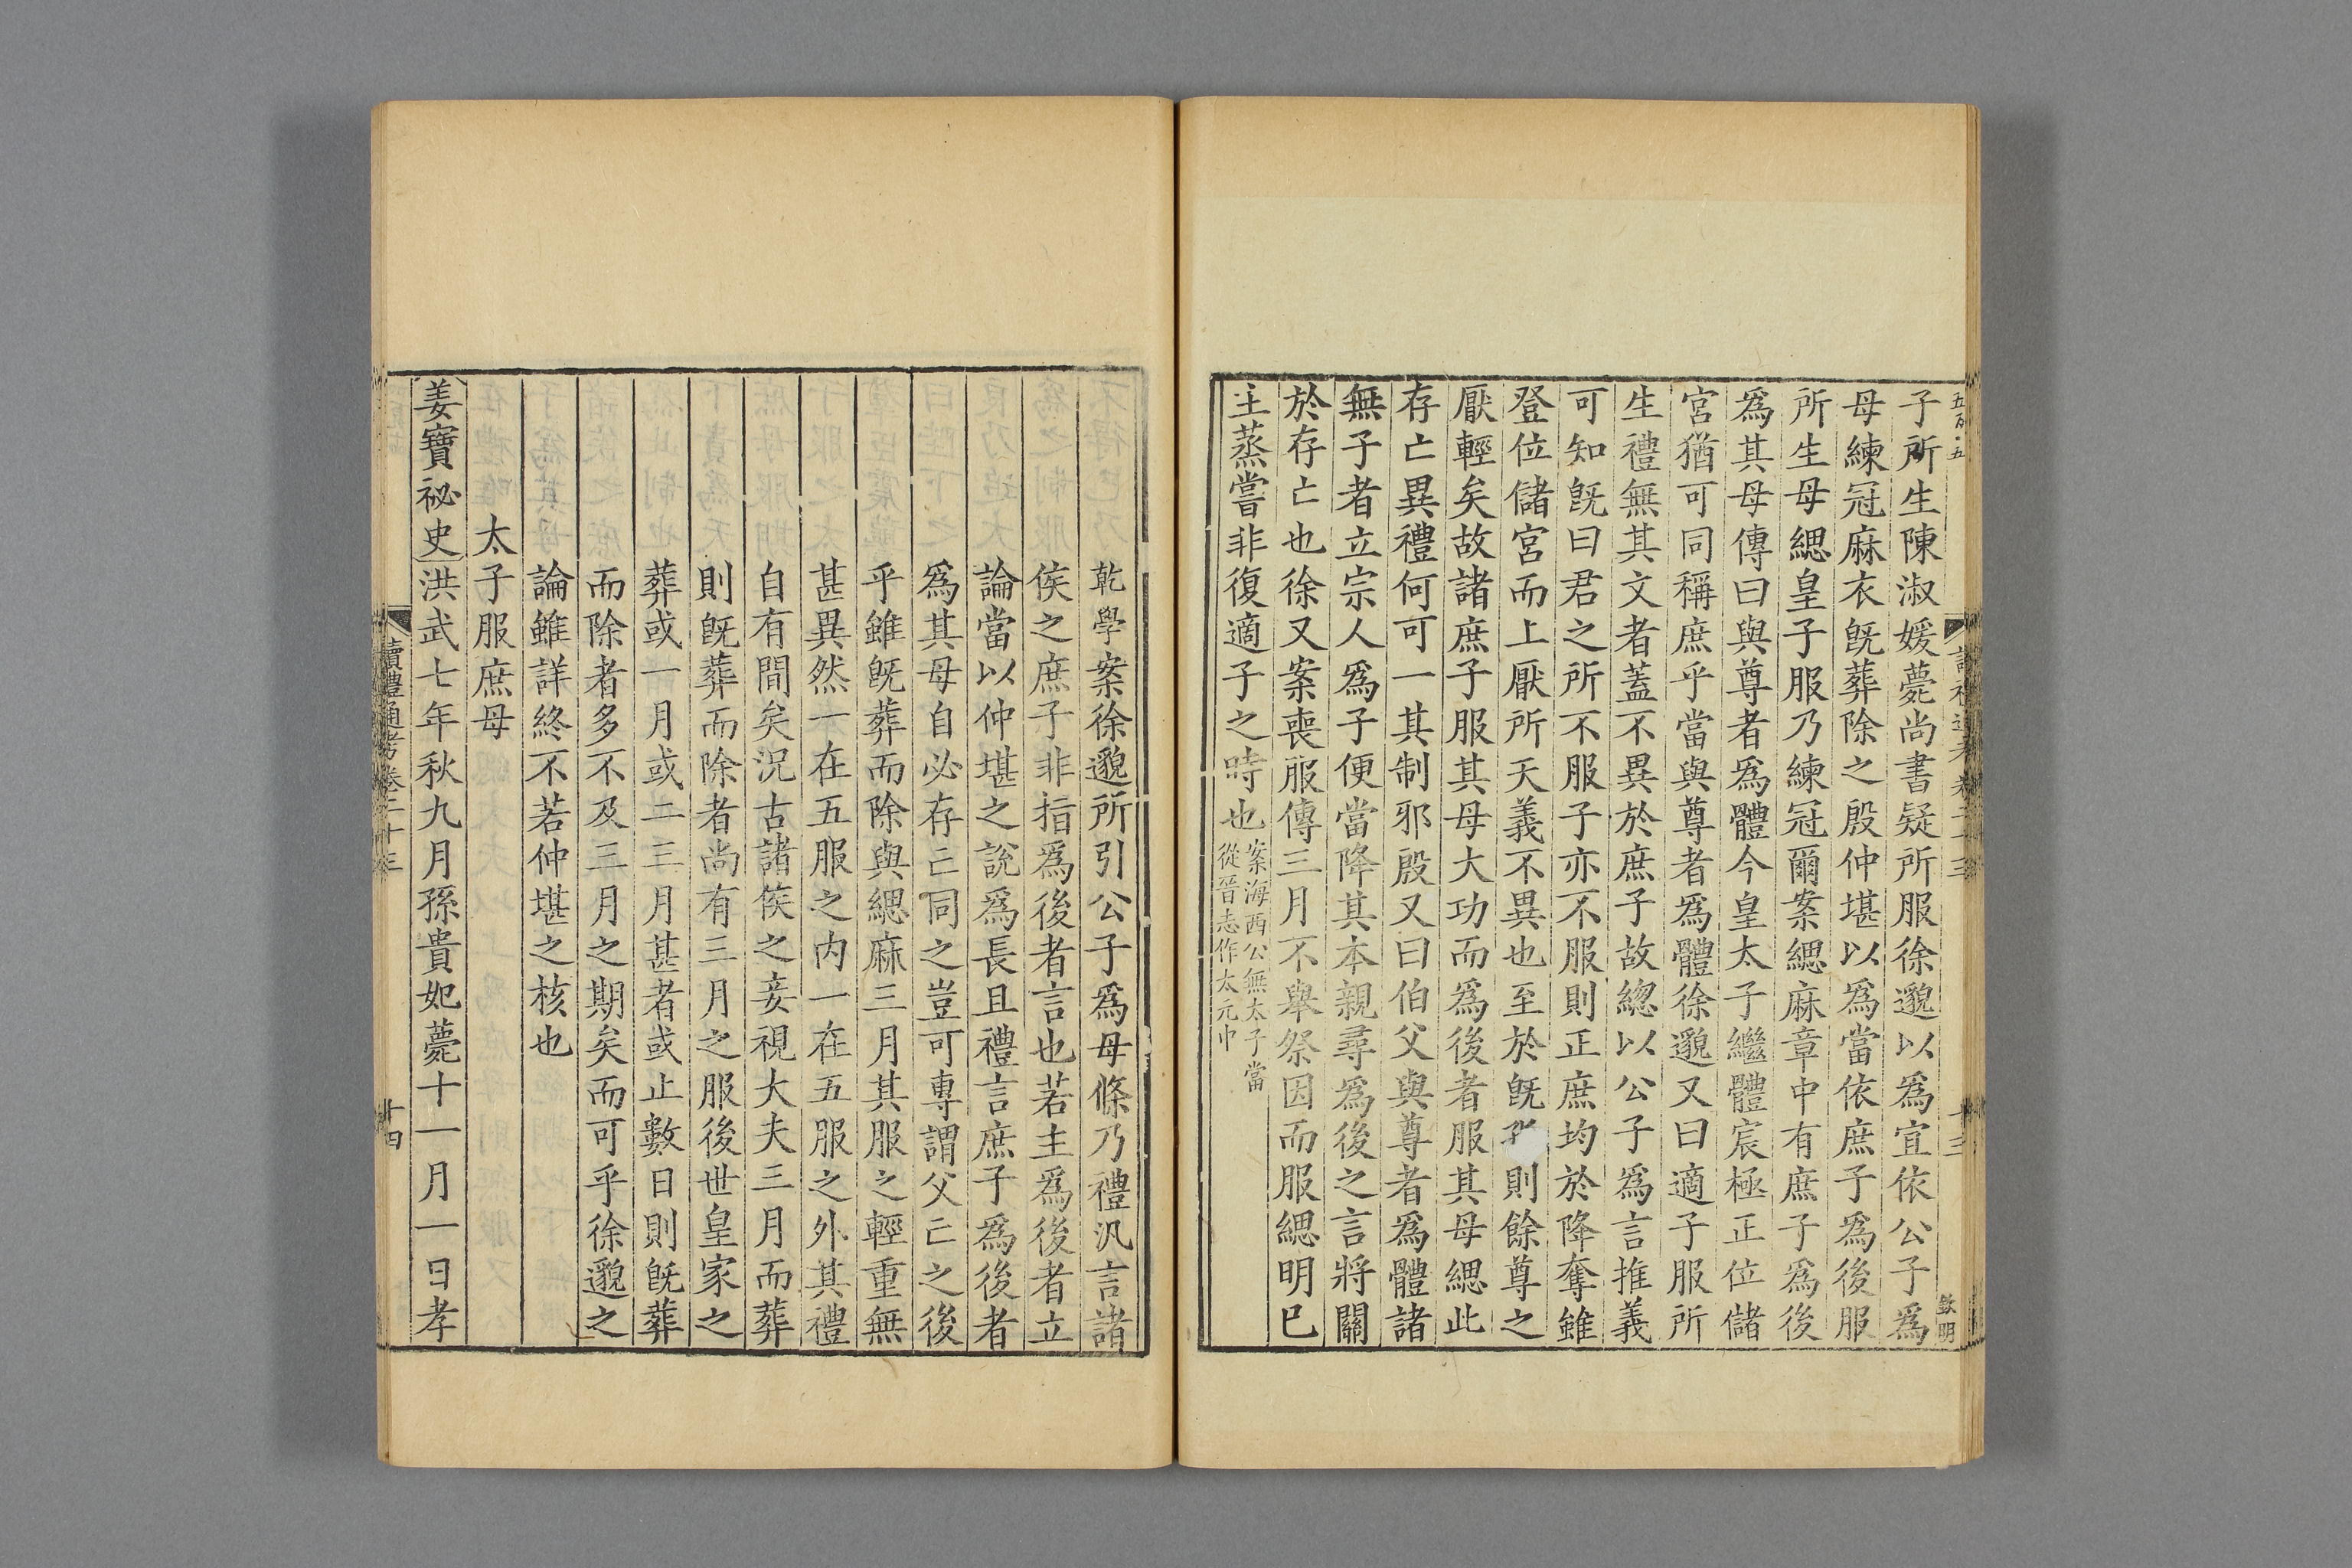 子所生陳淑媛薨尚書疑所服徐邈以爲宜依公子爲
母練冠麻衣旣葬除之殷仲堪以爲當依庶子爲後服
所生母緦皇子服乃練冠爾案緦麻章中有庶子爲後
爲其母傳曰與尊者爲體今皇太子繼體宸極正位儲
宮猶可同稱庶乎當與尊者爲體徐邈又曰適子服所
生禮無其文者蓋不異於庶子故緫以公子爲言推義
可知旣曰君之所不服子亦不服則正庶均於降奪雖
登位儲宮而上厭所天義不異也至於旣則餘尊之
厭輕矣故諸庶子服其母大功而爲後者服其母緦此
存亡異禮何可一其制邪殷又曰伯父與尊者爲體諸
無子者立宗人爲子便當降其本親尋爲後之言將關
於存亡也徐又案喪服傳三月不舉祭因而服緦明已
主蒸嘗非復適子之時也案海西公無太子當從晉志作太元中
乾學案徐邈所引公子爲母條乃禮汎言諸
侯之庶子非指爲後者言也若主爲後者立
論當以仲堪之說爲長且禮言庶子爲後者
爲其母自必存亡同之豈可專謂父亡之後
乎雖旣葬而除與緦麻三月其服之輕重無
甚異然一在五服之內一在五服之外其禮
自有間矣況古諸侯之妾視大夫三月而葬
則旣葬而除者尚有三月之服後世皇家之
葬或一月或二三月甚者或止數日則旣葬
而除者多不及三月之期矣而可乎徐邈之
論雖詳終不若仲堪之核也
太子服庶母
姜寶祕史洪武七年秋九月孫貴妃薨十一月一日孝
讀禮通考卷二十三
十四